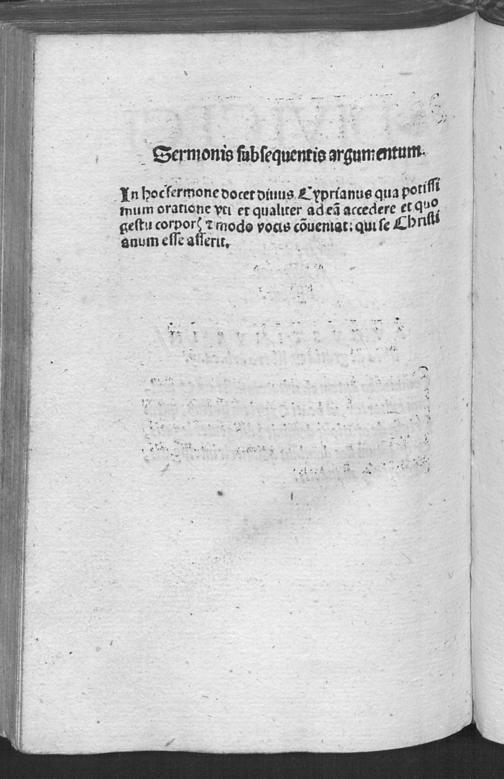 Sermonis subsequentis argumentum.
In hoc sermone docet diuus Cyprianus qua potissi
mum oratione vti et qualiter ad eā accedere et quo
gestu corporꝭ ⁊ modo vocis cōueniat: qui se Christi
anum esse asserit.